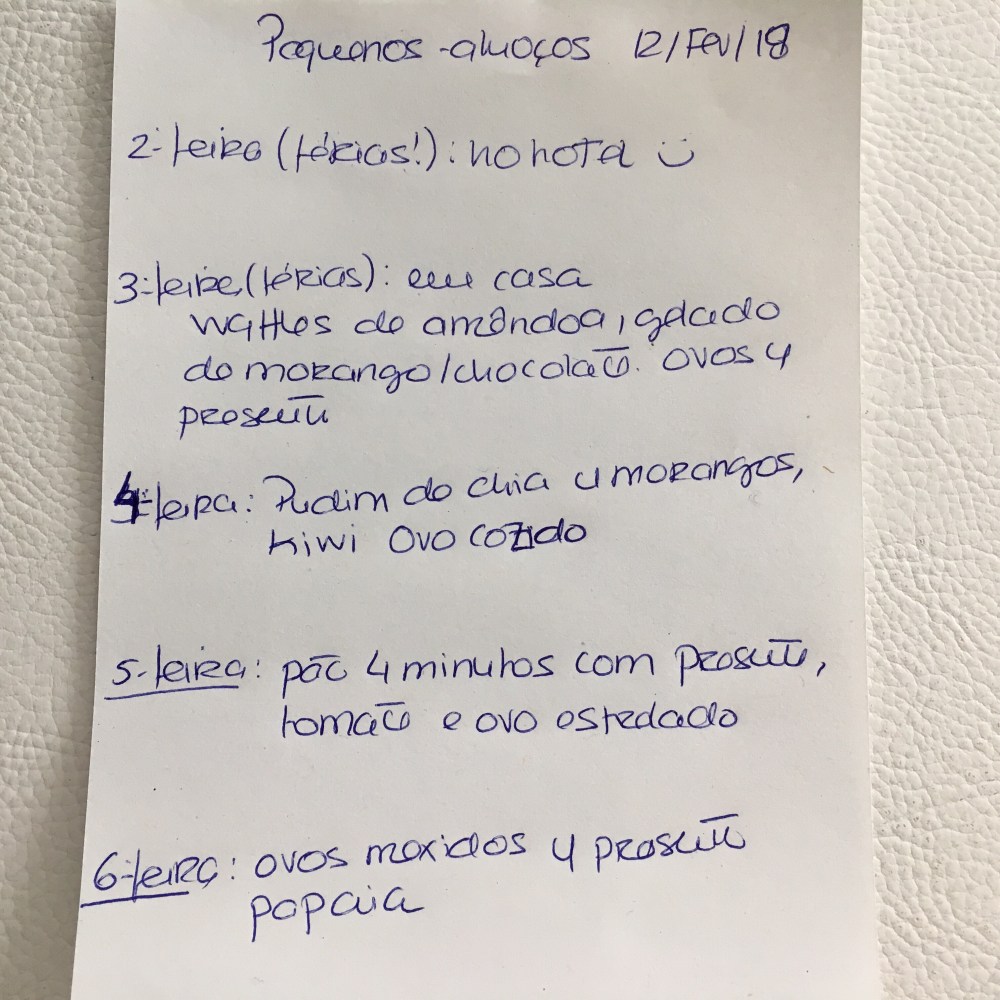 Pequenos-almoços 12/Fev/18
2ª feira (férias!): no hotel
3ª feira (férias): em casa
waffles de amêndoa, gelado
de morango/chocolate. ovos c/
presunto
4ª feira: Pudim de chia c/ morangos,
kiwi ovo cozido
5-feira: pão 4 minutos com presunto,
tomate e ovo estrelado
6-feira: ovos mexidos c/ presunto
papaia